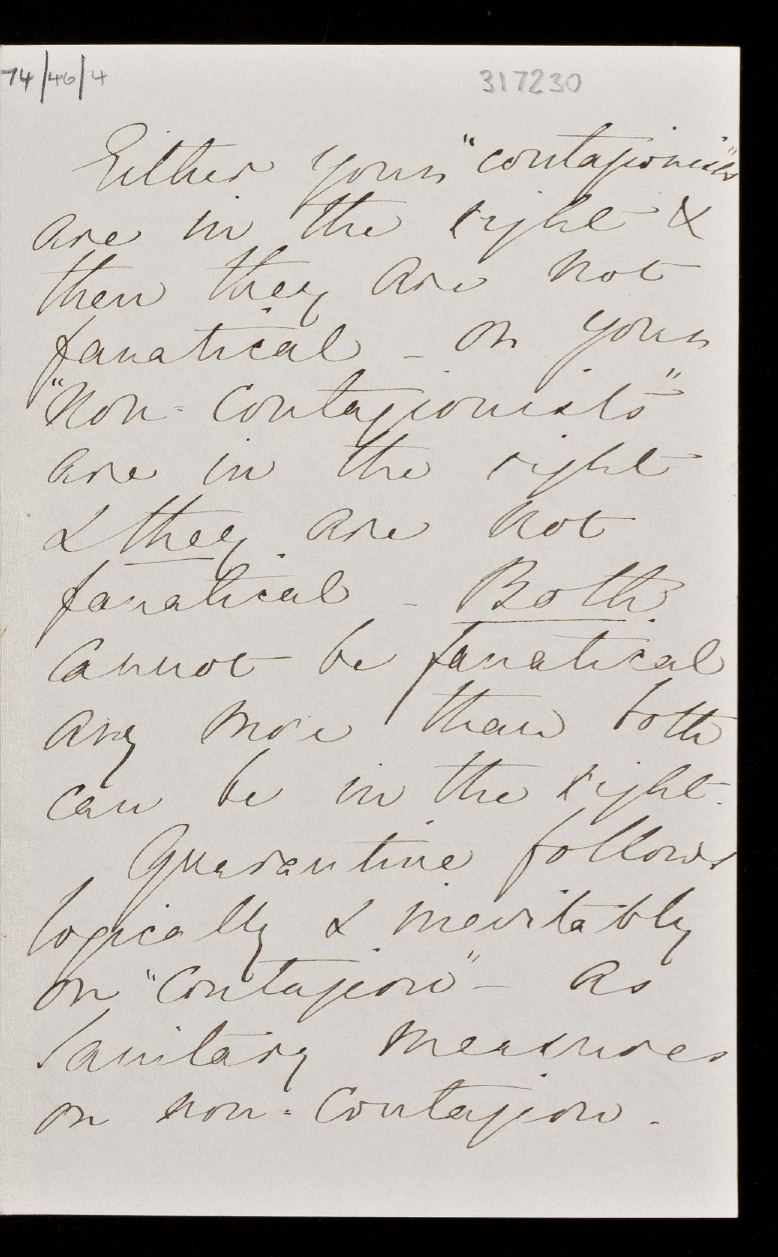 74/46/4
317230
Either your "contagionists"
are in the right &
then they are not
fanatical - or your
"non-contagionists"
are in the right
& they are not
fanatical - Both
cannot be fanatical
any more than both
can be in the right.
Quarantine follows
logically & inevitably
on "contagion" - as
Sanitary measures
on non-contagion.